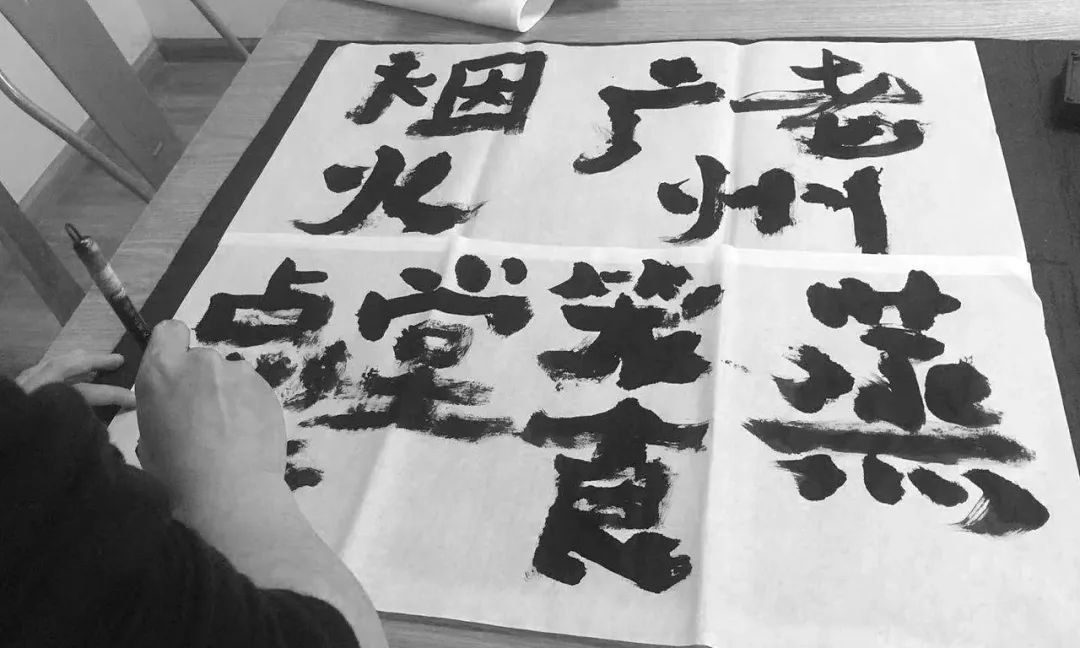 老广州
烟火
蒸
食
堂
点